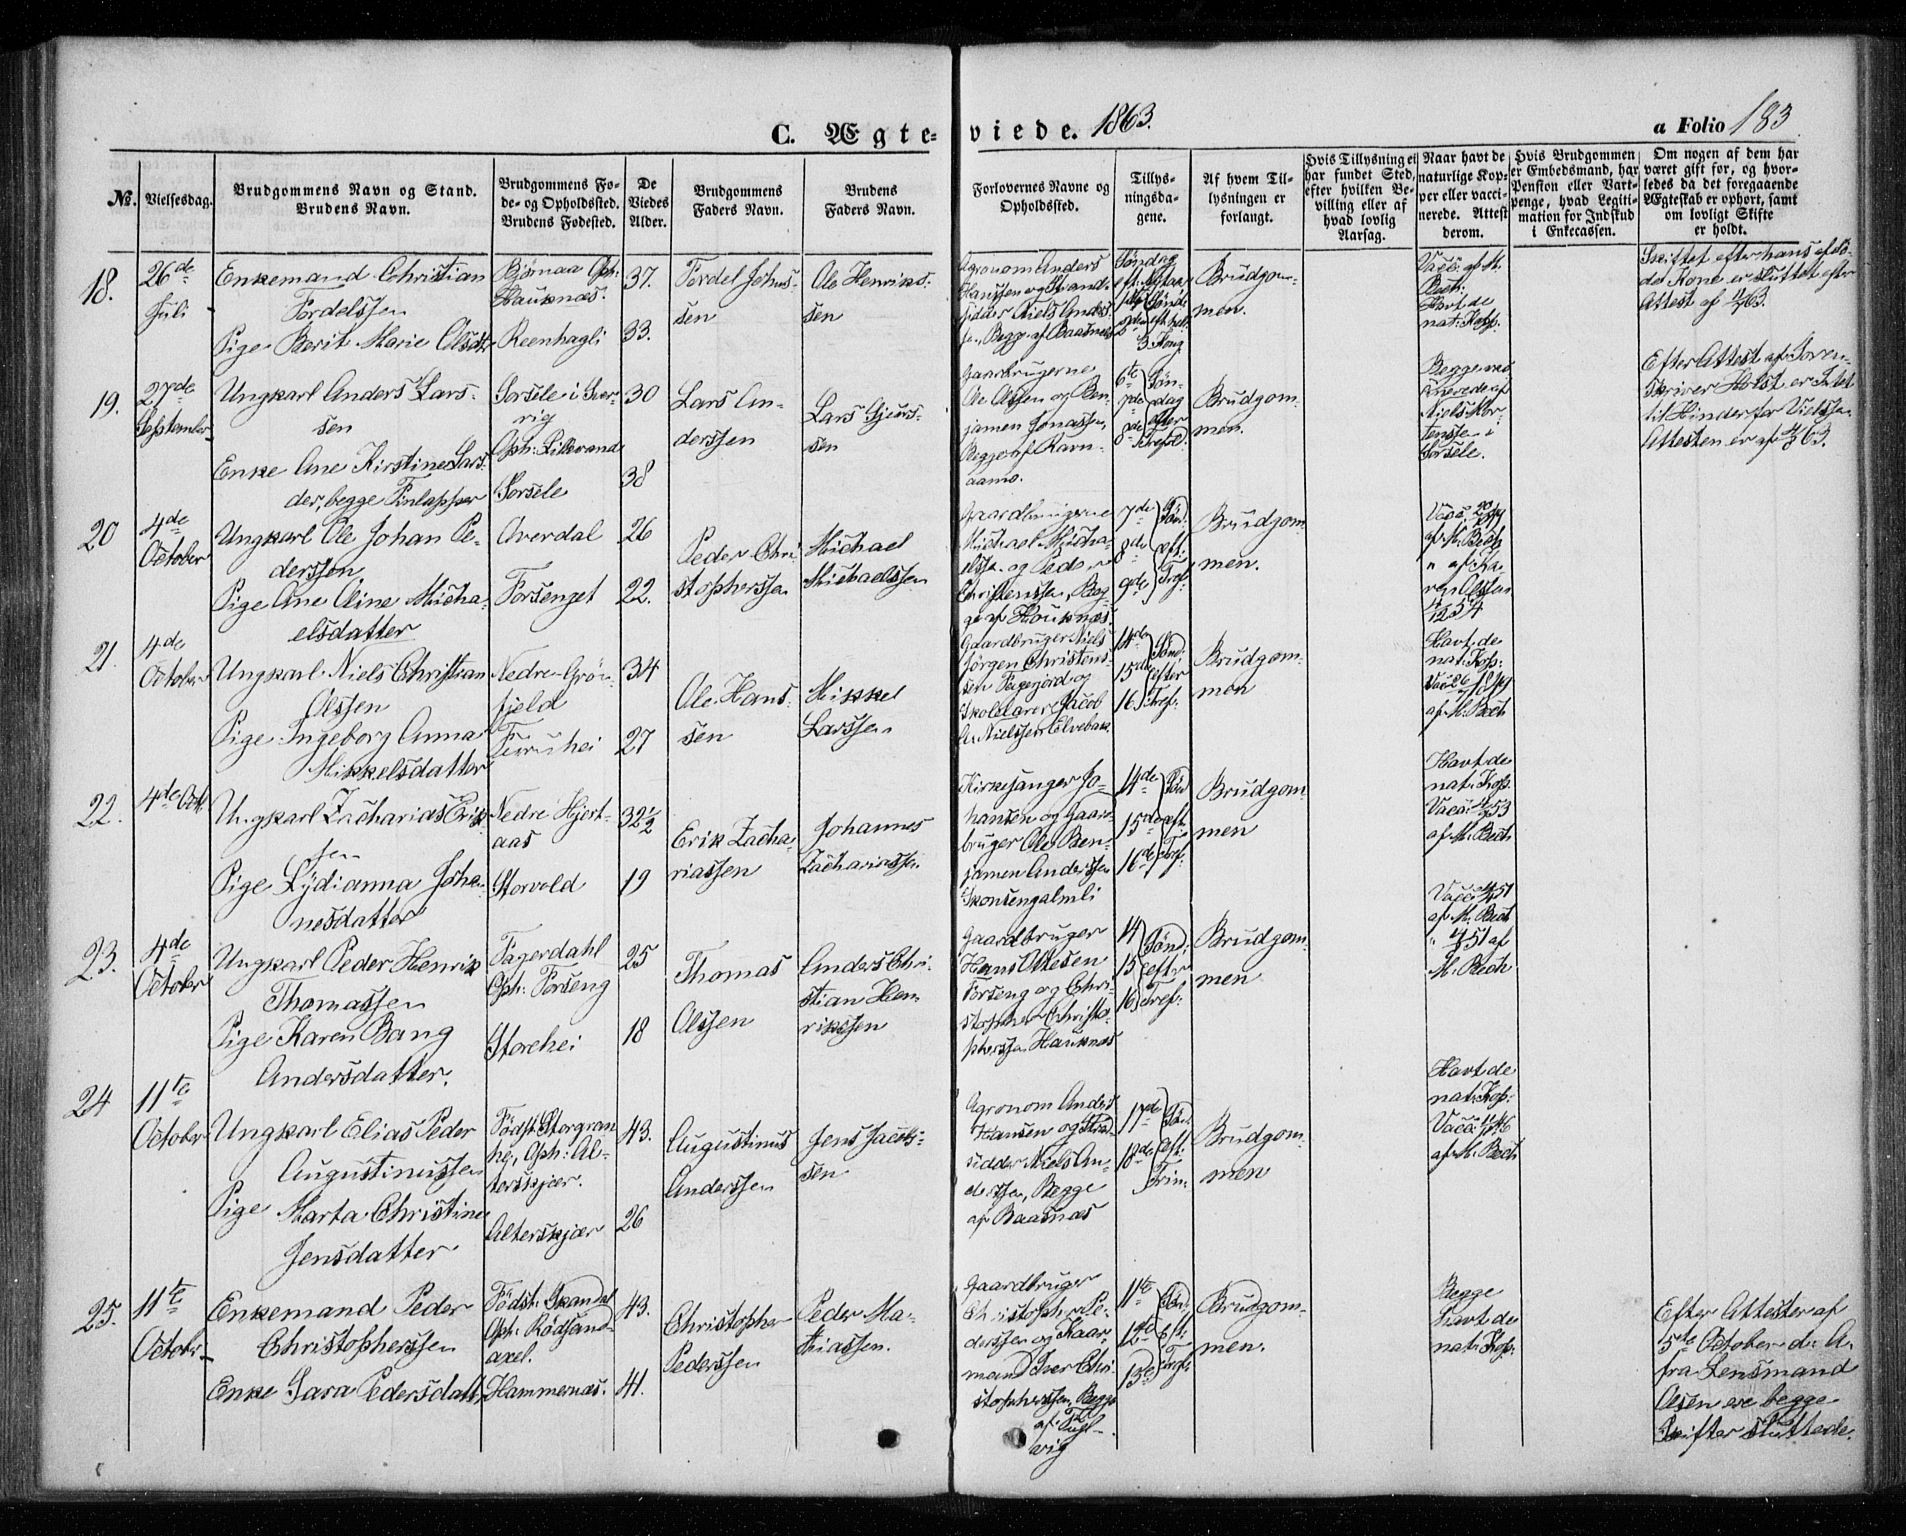 C. Ægte- viede. 1863.
a Folio 183
No.
Vielsesdag.
Brudgommens Navn og Stand.
Brudens Navn.
Brudgommens Fo-
de- og Opholdssted.
Brudens Fødested.
De
Viedes
Alder.
Brudgommens
Faders Navn.
Brudens
Faders Navn.
Forlovernes Navne og
Opholdssted.
Tillys-
ningsda-
gene.
Af hvem Til-
lysningen er
forlangt.
Hvis Tillysning ei
har fundet Sted,
efter hvilken Be-
villing eller af
hvad lovlig
Aarsag.
Naar havt de
naturlige Kop-
per eller vacci-
nerede. Attest
derom.
Hvis Brudgommen
er Embedsmand, har
Pension eller Vart-
penge, hvad Legiti-
mation for Indskud
i Enkecassen.
Om nogen af dem har
været gift før, og hvor-
ledes da det foregaaende
Ægteskab er ophørt, samt
om lovligt Skifte
er holdt.
18.
26de
Juli
Enkemand Christian
Tordelssen
Pige Berit Marie Olsdtr
Bjömaa Oph:
Hauknæs.
Reenhagli
37.
33.
Tordel Johns-
sen
Ole Henriks-
sen
Agronom Anders
Hanssen og Strand-
sidder Niels Anders-
se, Begge af Baasnæs
Söndag
Brudgom-
men.
Vacc: af M.
Bech:
Havt de
nat: Kop:
Skiftet efter hans afdö-
de Kone er sluttet efter
Attest af
19.
27de
September
Ungkarl Anders Lars-
sen
Enke Ane Kirstine Lars-
der, begge Finlapper
Sorsele i Sver-
rig
Oph:
Sorsele
30
38
Lars An-
derssen
Lars Sjurs-
sen
Gaardbrugerne
Ole Olssen og Ben-
jamen Jonassen,
Begge af Ravn-
aamo.
6te
7de
8de
Sön-
dag
efter
Trefol:
Brudgom-
men.
Begge vac-
cinerede af
Niels Mor-
tenssen i
Sorsele.
Efter Attest af Soren-
skriver Holst er Intet
til Hinder for Vielsen
Attesten er af
20
4de
October
Ungkarl Ole Johan Pe-
derssen
Pige Ane Oline Micha-
elsdatter
Averdal
Forsenget
26
22.
Peder Chri-
stopherssen
Michael
Michaelssen
Gaardbrugerne
Michael Micha-
elsse. og Peder
Christenssen, Beg-
ge af Houknæs.
7de
8de
9de
Sön:
eft:
Tref:
Brudgom
men.
Vacc:
af M: Bech
" af Ka-
ren Olssen
21.
4de
October
Ungkarl Niels Christian
Olssen
Pige Ingeborg Anna
Mikkelsdatter
Nedre-Grön-
fjeld
Furuhei
34
27
Ole Hans-
sen
Mikkel
Larssen
Gaardbruger Niels
Jörgen Christens-
sen og
Skolelærer Jacob
A. Nielssen Elvebak.
14de
15de
16.
Sönd:
efter
Tref:
Brudgom-
men
Havt de
nat: Kop:
af M: Bech
22.
4de Oct.
Ungkarl Zacharias Erik-
sen
Pige Lydianna Joha-
nesdatter
Nedre Hjert-
aas
Storvold
32½
19
Erik Zacha-
riassen
Johannes
Zachariassen
Kirkesanger Jo-
hansen og Gaard-
bruger Ole Ben-
jamen Anderssen
14de
15de
16de
Sönd
eft:
Tref:
Brudgom-
men
Havt de
nat: Kop.
Vacc:
af M: Bech
23.
4de
October
Ungkarl Peder Henrik
Thomassen
Pige Karen Bang
Andersdatter.
Fagerdahl
Oph: Forseng
Storehei
25
18
Thomas
Olssen
Anders Chri-
stian Hen-
rikssen
Gaardbruger
Hans Ottesen
Forseng og Chri-
stopher Christo-
pherssen Hauknæs
14
15
16
Sönd:
efter
Tref:
Brudgom-
men
Vacc:
af M. Bech
af
M. Bech
24
11te
October
Ungkarl Elias Peder
Augustinussen
Pige Marta Christine
Jensdatter
Födst: Storgran
hei, Oph: Al-
terskjær.
Alterskjær
43.
26
Augustinus
Anderssen
Jens Jacob-
sen
Agronom Anders
Hansen og Strand-
sidder Niels An-
derssen, Begge
af Baasnæs
17de
18de
Sön:
eft:
Trin:
Brudgom-
men
Havt de
nat: Kop:
Vacc:
af M. Bech
25.
11te
October
Enkemand Peder
Christopherssen
Enke Sara Pedersdatter
Födst: Skandal
Oph: Rödsand-
axel.
Hammernæs.
43.
41.
Christopher
Pederssen
Peder Ma-
thiassen.
Gaardbruger
Christopher Pe-
derssen og Kaar-
mand Iver Chri-
stopherssen, Begge
af Fugl-
vig
11te
12te
13de
Sön:
eft:
Tref:
Brudgom-
men.
Begge
havt de
nat: Kop:
Efter Attester af
5te October d. A.
fra Lensmand
Olsen ere begge
Skifter sluttede.